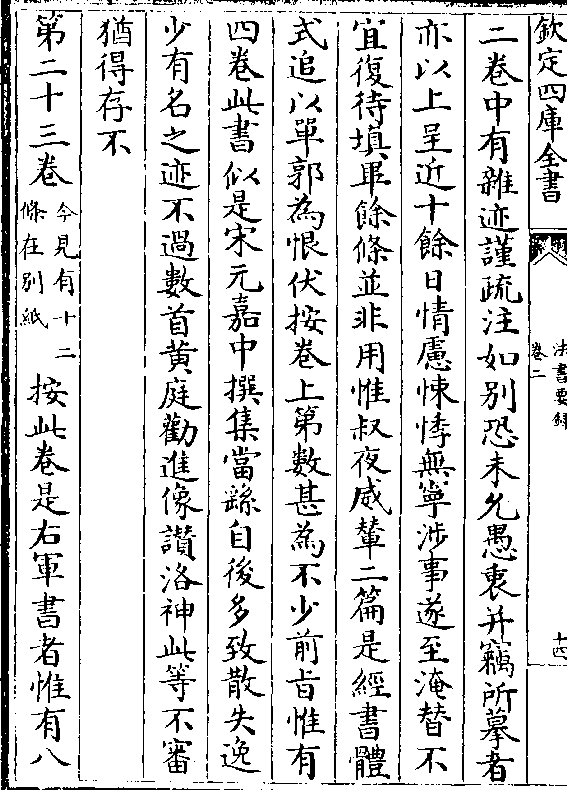 欽定四庫全書
法書要録
卷二
十四
二卷中有雜迹謹疏注如别恐未允愚衷并竊所摹者
亦以上呈近十餘日情慮悚悸無寧涉事遂至淹替不
宜復待填畢餘條並非用惟叔夜威輦二篇是經書體
式追以單郭為恨伏按卷上第數甚為不少前㫖惟有
四卷此書似是宋元嘉中撰集當繇自後多致散失逸
少有名之迹不過數首黄庭勸進像讚洛神此等不審
猶得存不
第二十三卷
今見有十二
條在别紙
按此卷是右軍書者惟有八